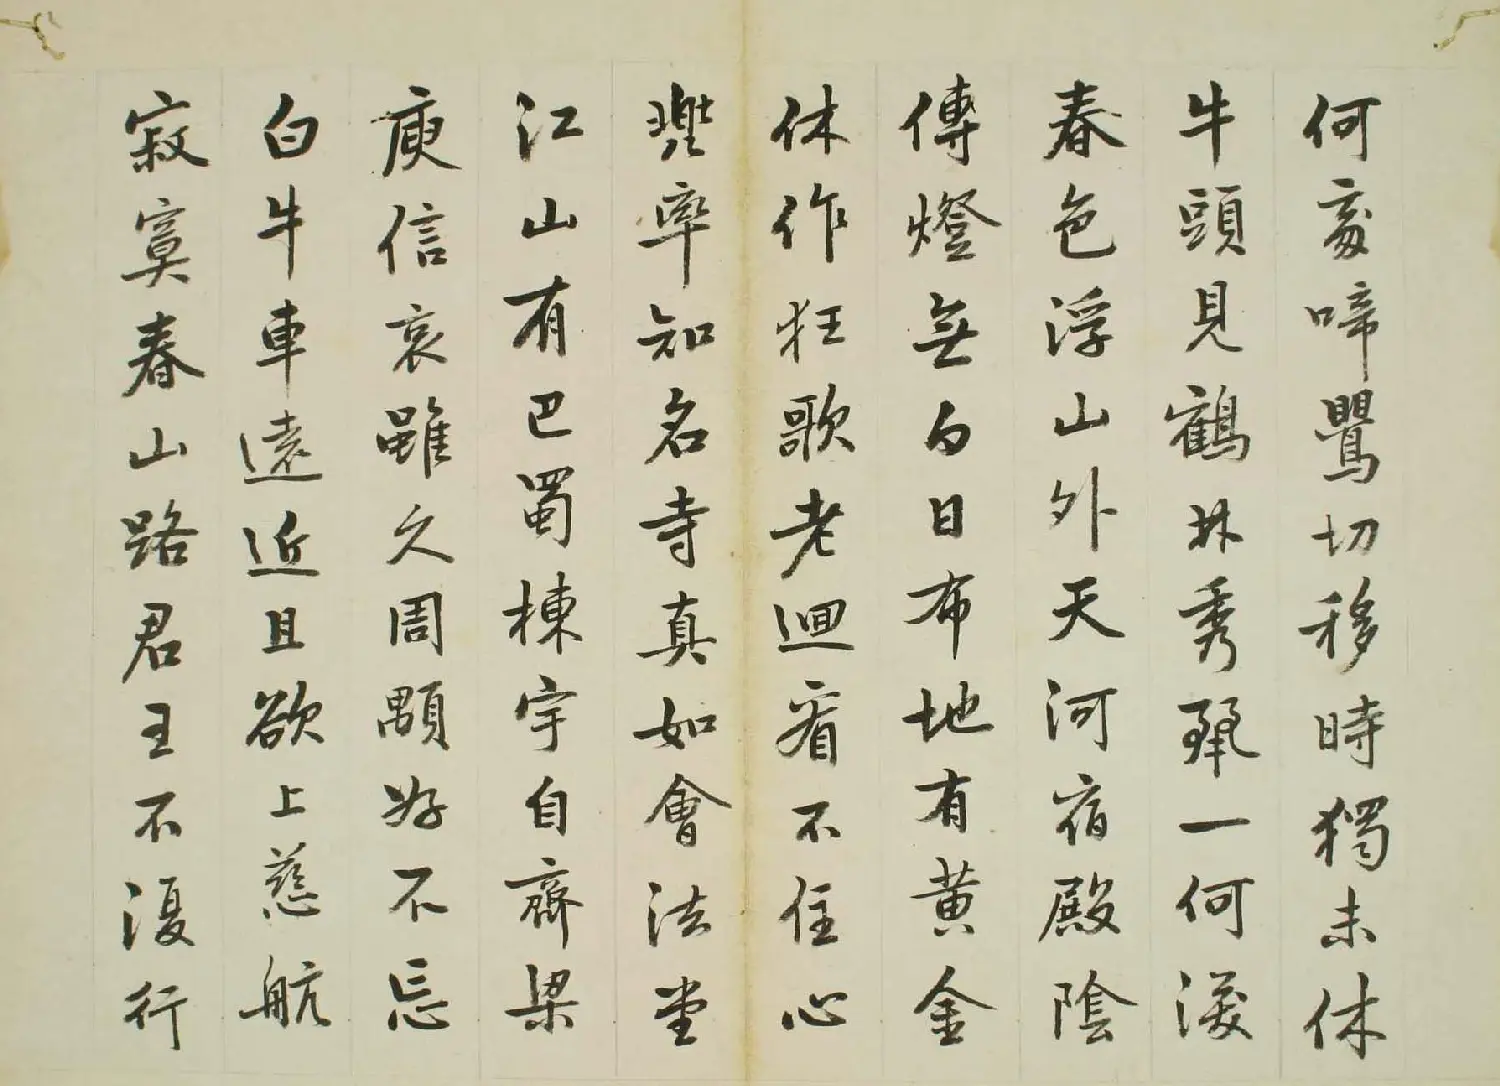 何處啼鸎切移時獨未休
牛頭見鶴林秀麗一何深
春色浮山外天河宿殿陰
傳燈無白日布地有黃金
休作狂歌老迴看不住心
兜率知名寺真如會法堂
江山有巴蜀棟宇自齊梁
庾信哀雖久周顒好不忘
白牛車遠近且欲上慈航
寂寞春山路君王不復行